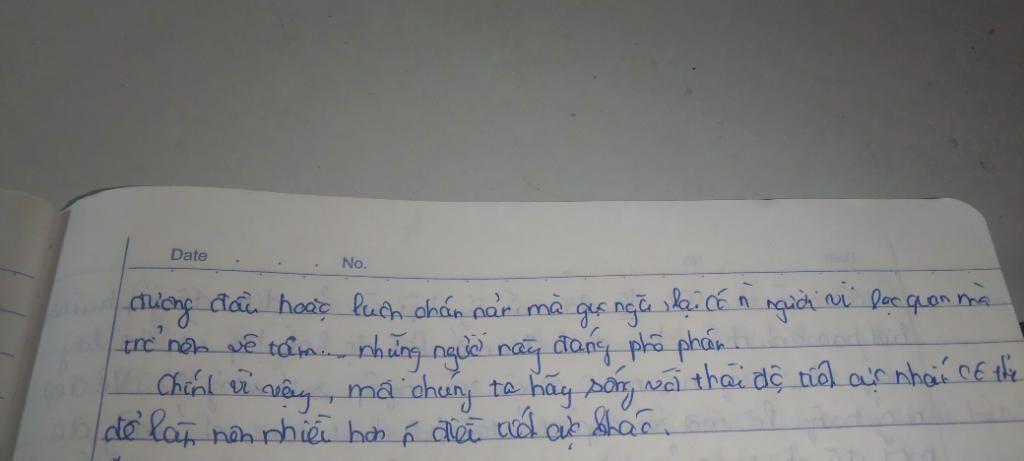 Date . . . No.
đương đầu hoặc luôn chán nản mà gục ngã, lại có n~ người vì lạc quan mà
trở nên vô tâm.... những người này đáng phê phán.
Chính vì vậy, mỗi chúng ta hãy sống với thái độ tích cực nhất có thể
để lan nên nhiều hơn n~ điều tích cực khác.